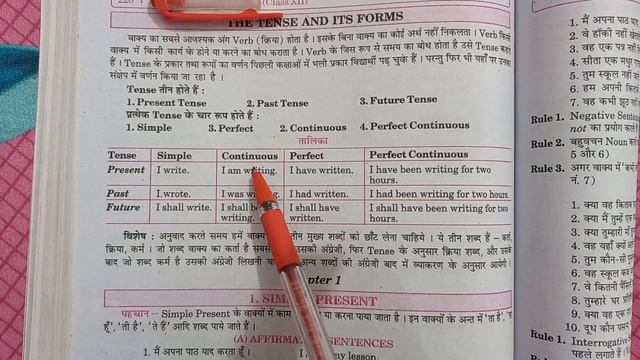 228
(Class XII)
THE TENSE AND ITS FORMS
वाक्य का सबसे आवश्यक अंग Verb (क्रिया) होता है। इसके बिना वाक्य का कोई अर्थ नहीं निकलता। Verb किसी
वाक्य में किसी कार्य के होने या करने का बोध कराता है। Verb के जिस रूप से समय का बोध होता है उसे Tense कहते
हैं। Tense के प्रकार तथा रूपों का वर्णन पिछली कक्षाओं में भली प्रकार विद्यार्थी पढ़ चुके हैं। परन्तु फिर भी यहाँ पर उनका
संक्षेप में वर्णन किया जा रहा है।
Tense तीन होते हैं :
1. Present Tense 2. Past Tense 3. Future Tense
प्रत्येक Tense के चार रूप होते हैं :
1. Simple 3. Perfect 2. Continuous 4. Perfect Continuous
तालिका
Tense Simple Continuous Perfect Perfect Continuous
Present I write. I am writing. I have written. I have been writing for two
hours.
Past I wrote. I was I had written. I had been writing for two hours.
Future I shall write. I shall I shall have I shall have been writing for two
writing. written. hours.
विशेष : अनुवाद करते समय हमें तीन मुख्य शब्दों को छाँट लेना चाहिये। ये तीन शब्द हैं – कर्ता,
क्रिया, कर्म। जो शब्द वाक्य का कर्ता है उसकी अंग्रेजी, फिर Tense के अनुसार क्रिया शब्द, और उसके
बाद जो शब्द कर्म है उसकी अंग्रेजी लिखनी अन्य शब्दों की अंग्रेजी बाद में व्याकरण के अनुसार आयेगी।
1
1. PRESENT
पहचान – Simple Present के वाक्यों में काम या करना पाया जाता है। इन वाक्यों के अन्त में 'ता है', 'ता
हूँ', 'ती है', 'ते हैं' आदि शब्द पाये जाते हैं।
(A) SENTENCES
1. मैं अपना पाठ याद करता हूँ। my lesson.
1. मैं अपना पाठ
2. वे हॉकी नहीं
3. वह एक पत्र
4. सीता एक मधुर
5. तुम स्कूल नहीं
6. हम अपनी
7. वह कभी झूठ
Rule 1. Negative
not का प्रयोग
Rule 2. बहुवचन Noun
5 और 6)
Rule 3. अगर वाक्य में
नं. 7)
1. क्या वह
2. क्या मैं तुम्हें
3. क्या तुम्हारी
4. वह यहाँ क्यों
5. तुम कौन-सी
6. वह स्कूल
7. वे कितनी
8. तुम्हारे घर
9.
10. दूध कौन
Rule 1. Interrogative
पहले लगाते हैं।